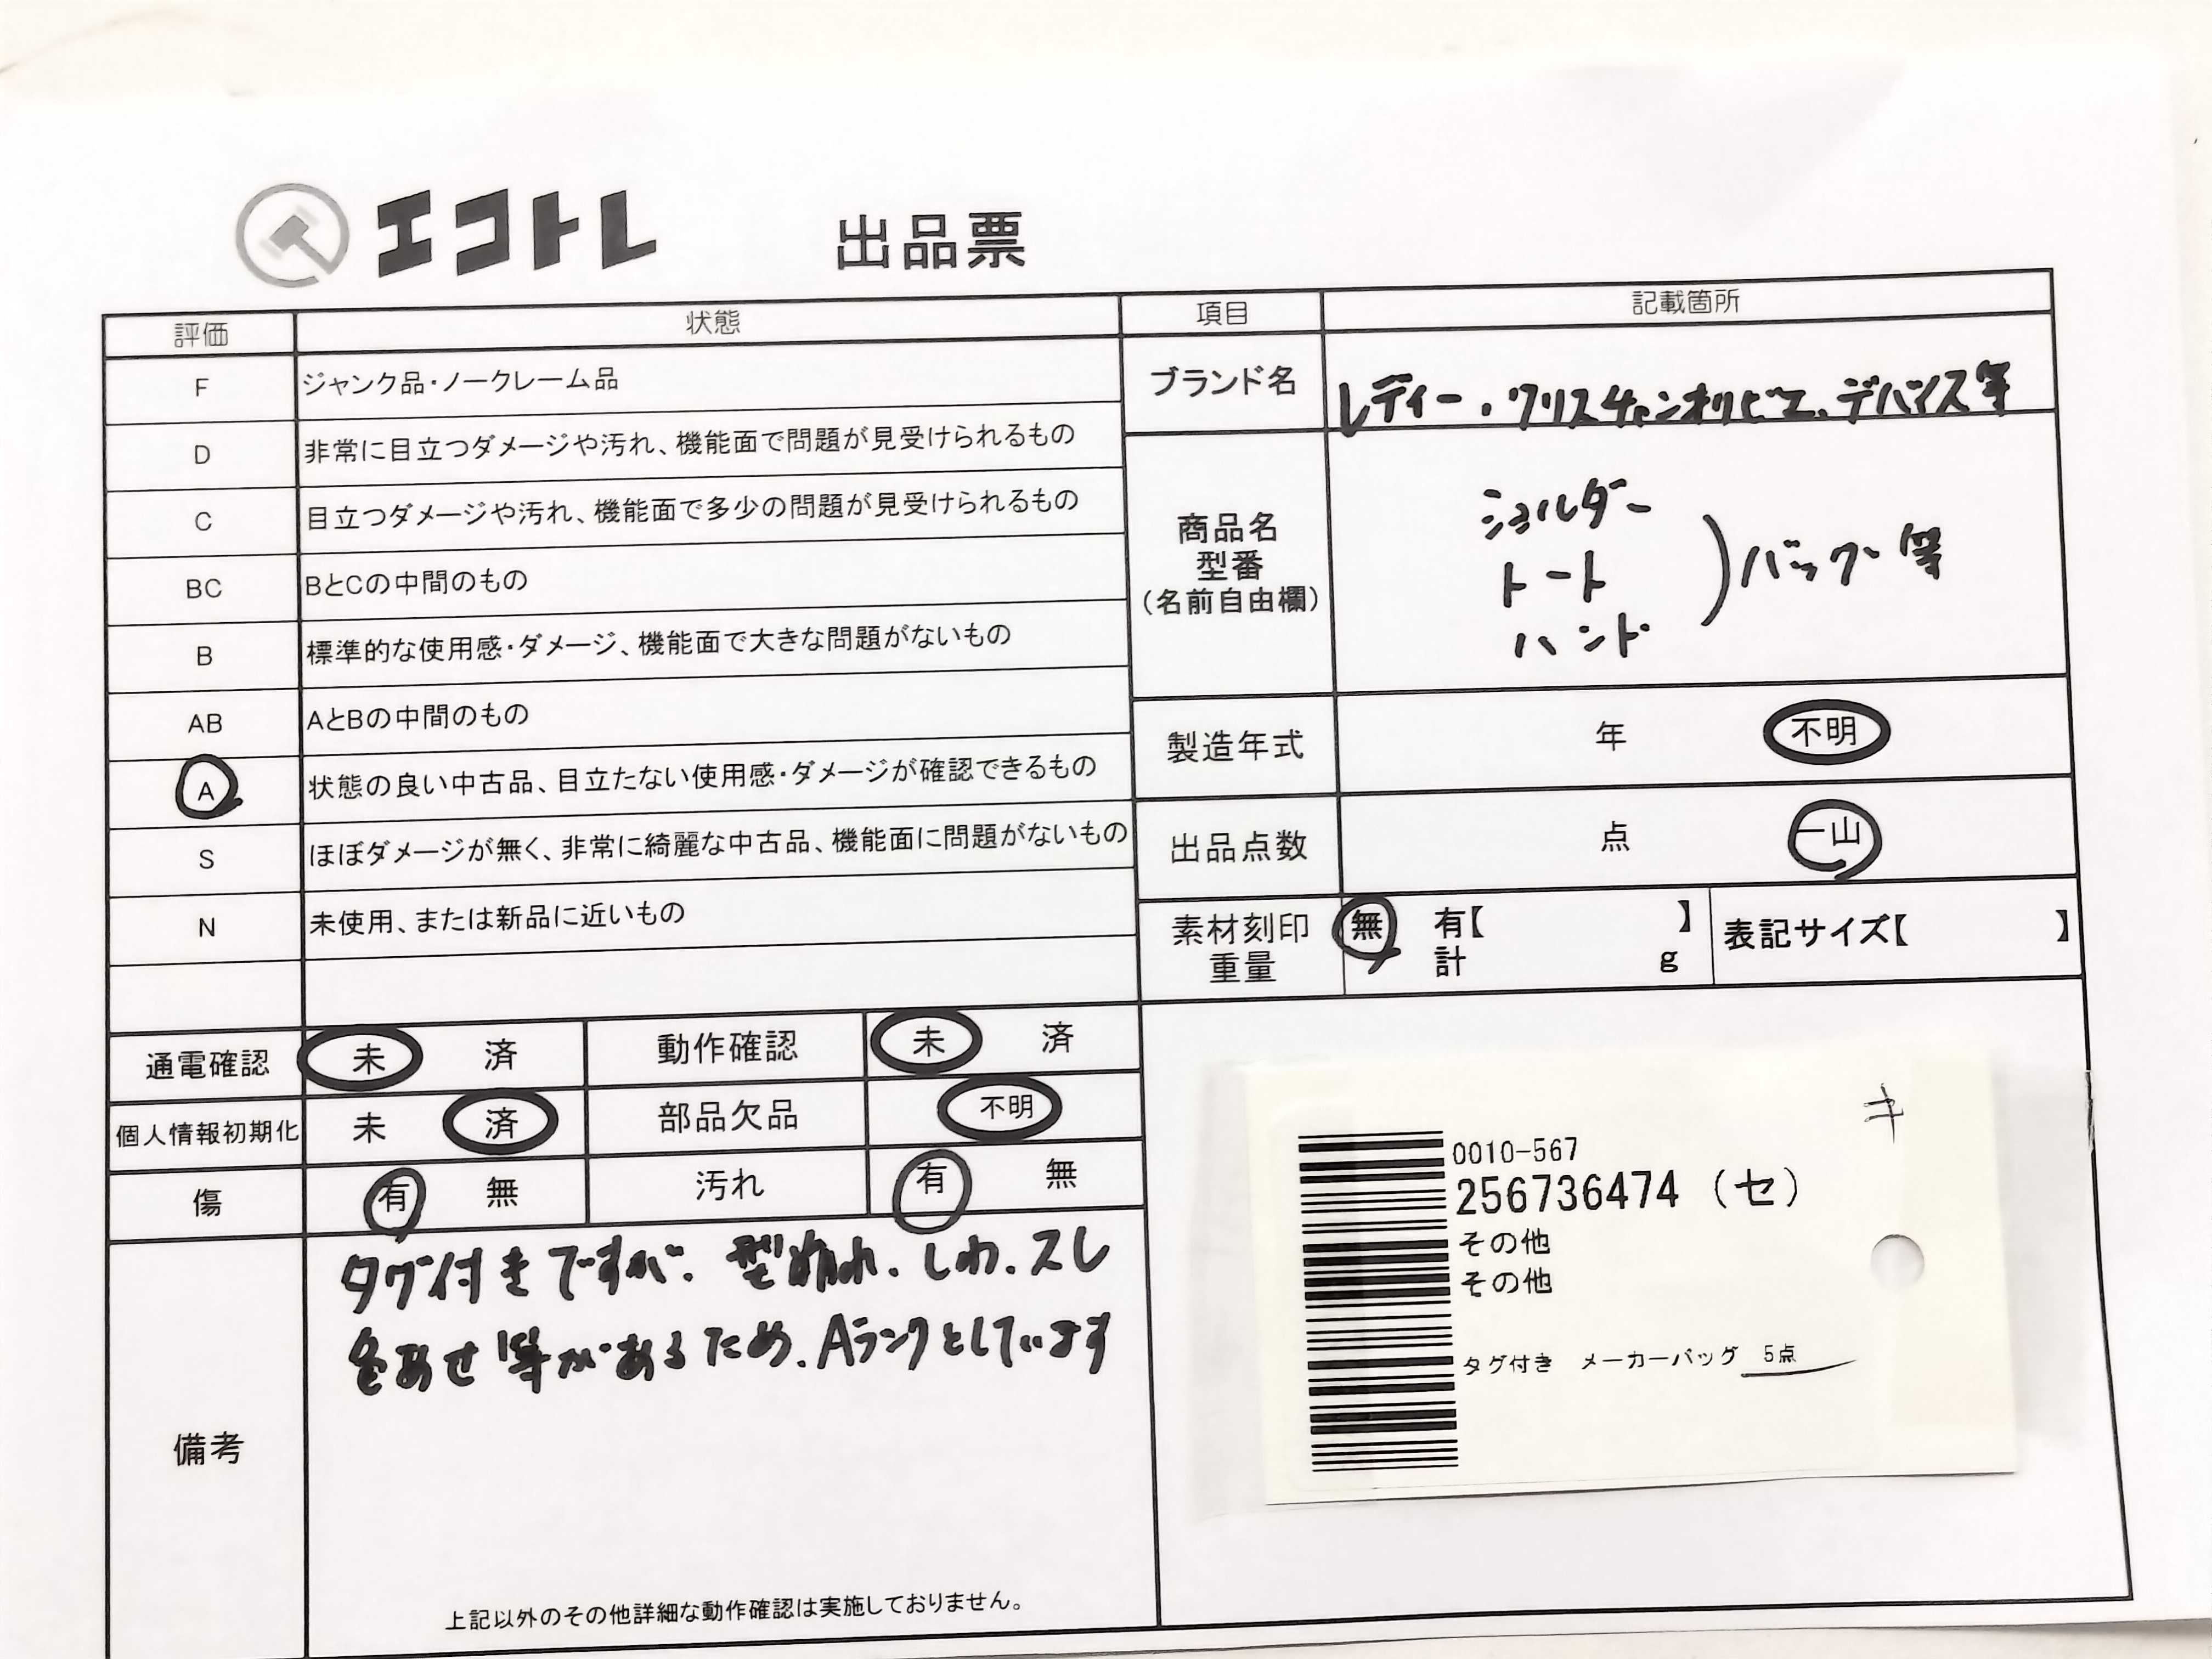 エコトレ 出品票
評価 状態 項目 記載箇所
F ジャンク品・ノークレーム品
D 非常に目立つダメージや汚れ、機能面で問題が見受けられるもの
C 目立つダメージや汚れ、機能面で多少の問題が見受けられるもの
BC BとCの中間のもの
B 標準的な使用感・ダメージ、機能面で大きな問題がないもの
AB AとBの中間のもの
A 状態の良い中古品、目立たない使用感・ダメージが確認できるもの
S ほぼダメージが無く、非常に綺麗な中古品、機能面に問題がないもの
N 未使用、または新品に近いもの
ブランド名 レディー、クリスチャンオリビエ、デバイス等
商品名
型番
(名前自由欄)
ショルダー
トート
ハンド
)バッグ等
製造年式 年 不明
出品点数 点 一山
素材刻印 無 有【 】 表記サイズ【 】
重量 計 g
通電確認 未 済 動作確認 未 済
個人情報初期化 未 済 部品欠品 不明
傷 有 無 汚れ 有 無
備考
タグ付きですが、型崩れ、しわ、スレ
色あせ等があるため、Aランクとしています
上記以外のその他詳細な動作確認は実施しておりません。
キ
0010-567
256736474 (セ)
その他
その他
タグ付き メーカーバッグ 5点